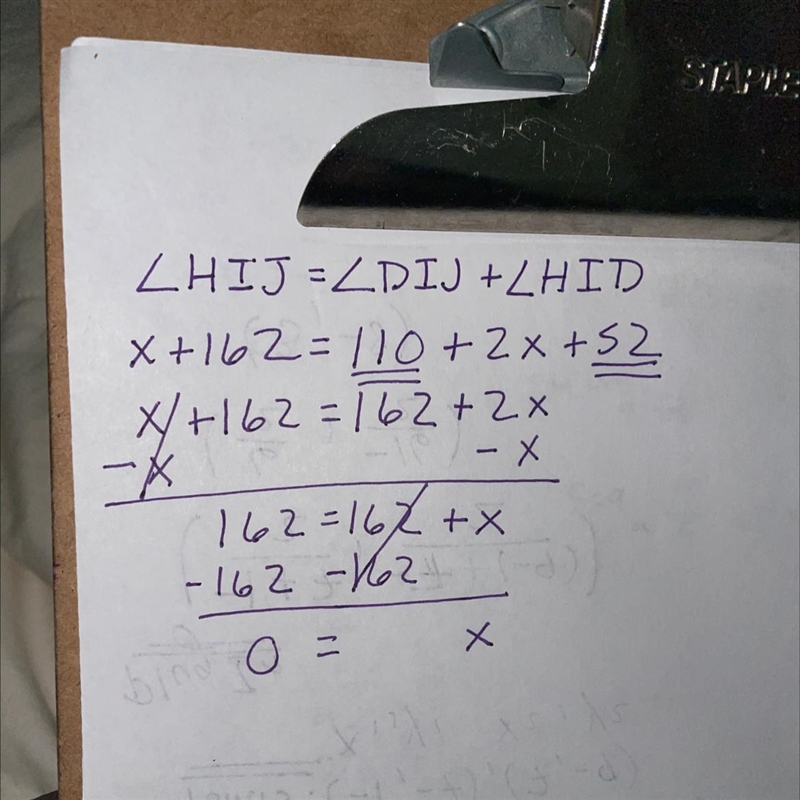 STAPLE
∠HIJ = ∠DIJ + ∠HID
x + 162 = 110 + 2x + 52
x + 162 = 162 + 2x
- x - x
162 = 162 + x
-162 -162
0 = x